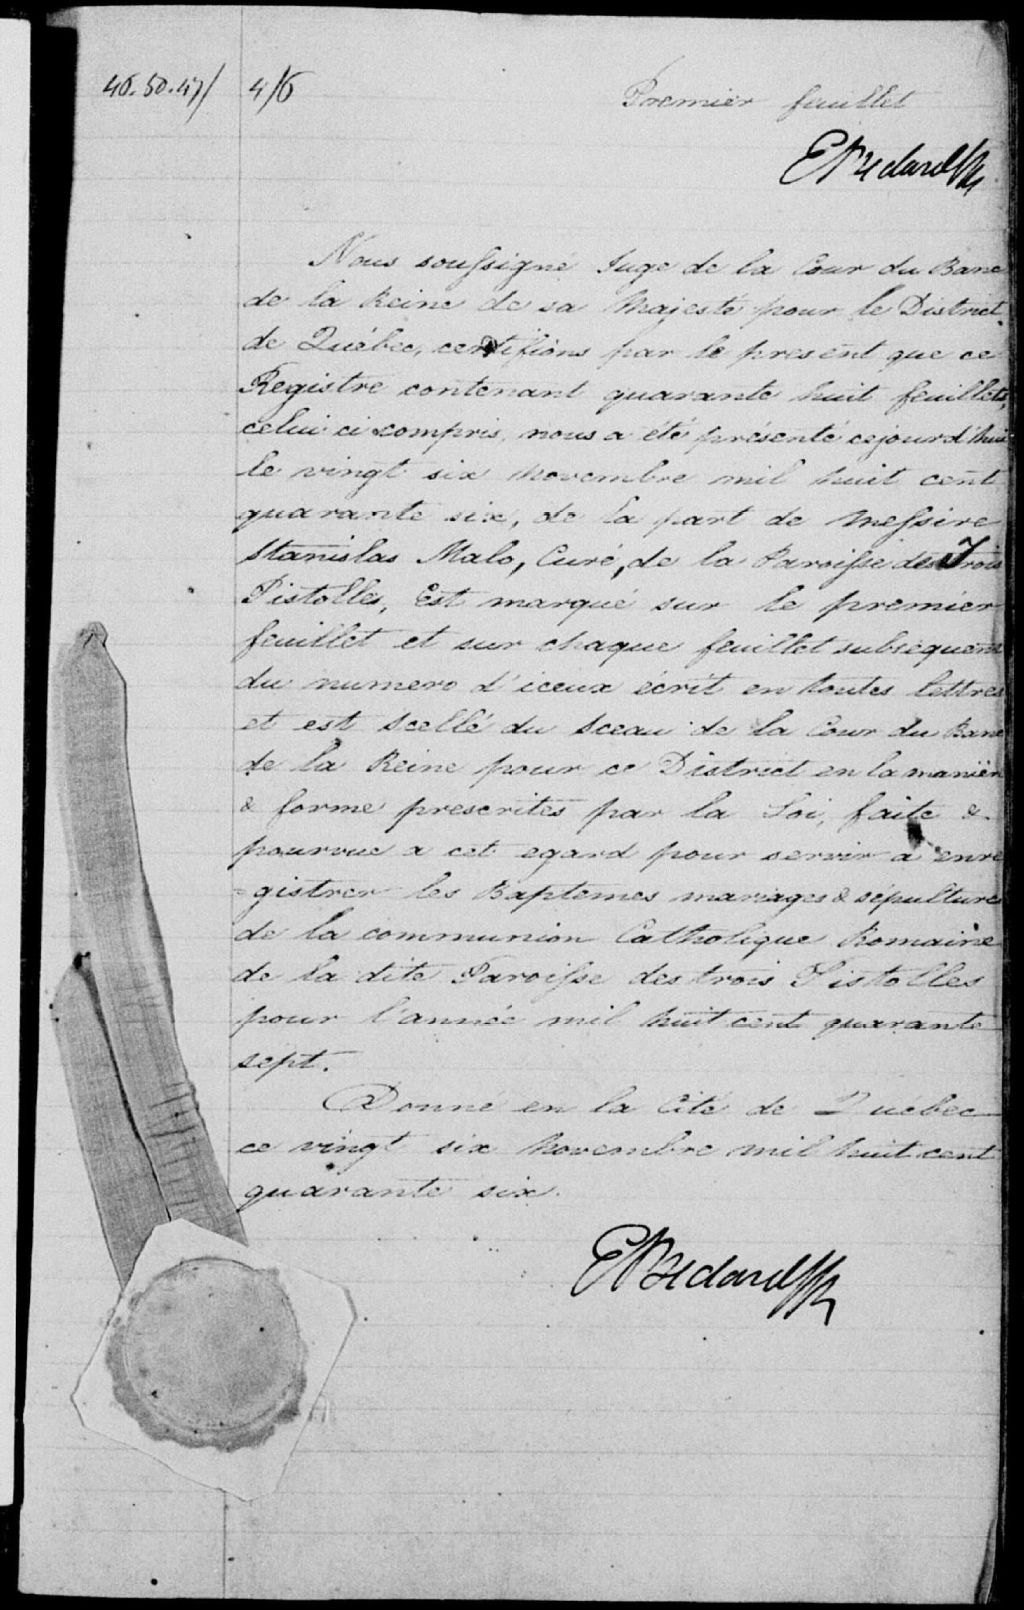 46.50.47/ 4/6
Premier feuillet
E Bedard
Nous soussigné Juge de la Cour du Banc
de la Reine de sa Majesté pour le District
de Québec, certifions par le present que ce
Registre contenant quarante huit feuillets,
celui ci compris, nous a été présenté cejourd'hui
le vingt six Novembre mil huit cent
quarante six, de la part de Messire
Stanislas Malo, Curé, de la Paroisse des Trois
Pistolles, Est marqué sur le premier
feuillet et sur chaque feuillet subsequent
du numero d'iceux écrit en toutes lettres
et est Scellé du Sceau de la Cour du Banc
de la Reine pour ce District en la manièr
& forme prescrites par la Loi, faite &
pourvue a cet egard pour servir a enre
=gistrer les Baptemes mariages & sépultures
de la communion Catholique Romaine
de la dite Paroisse des trois Pistolles
pour l'année mil huit cent quarante
sept.
Donné en la Cité de Québec
ce vingt six Novembre mil huit cent
quarante six.
E Bedard